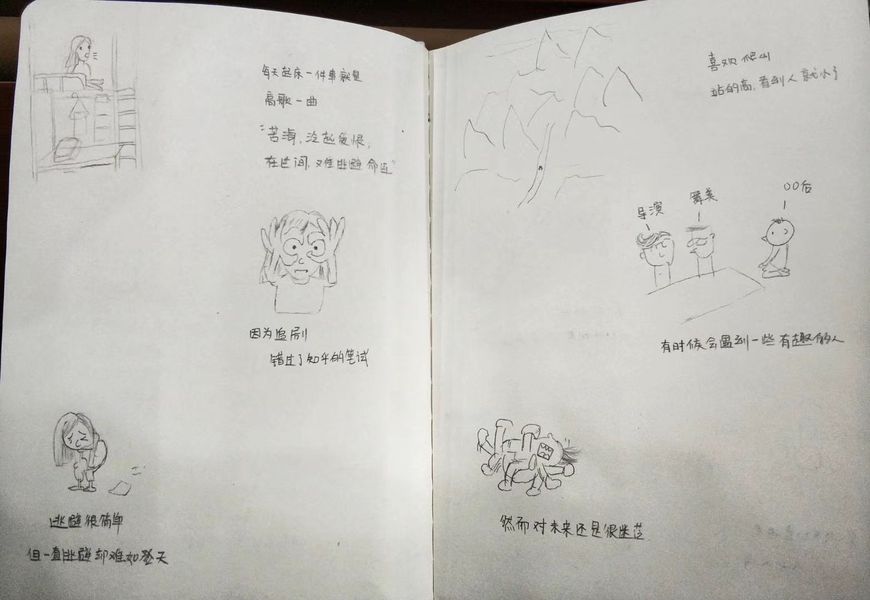 每天起床一件事就是
高歌一曲
"苦海,泛起爱恨,
在世间,难逃避命运"
因为追剧
错过了知乎的笔试
逃避很简单
但一直逃避却难如登天
喜欢爬山
站的高,看到人就小了
导演
舞美
00后
有时候会遇到一些有趣的人
然而对未来还是很迷茫